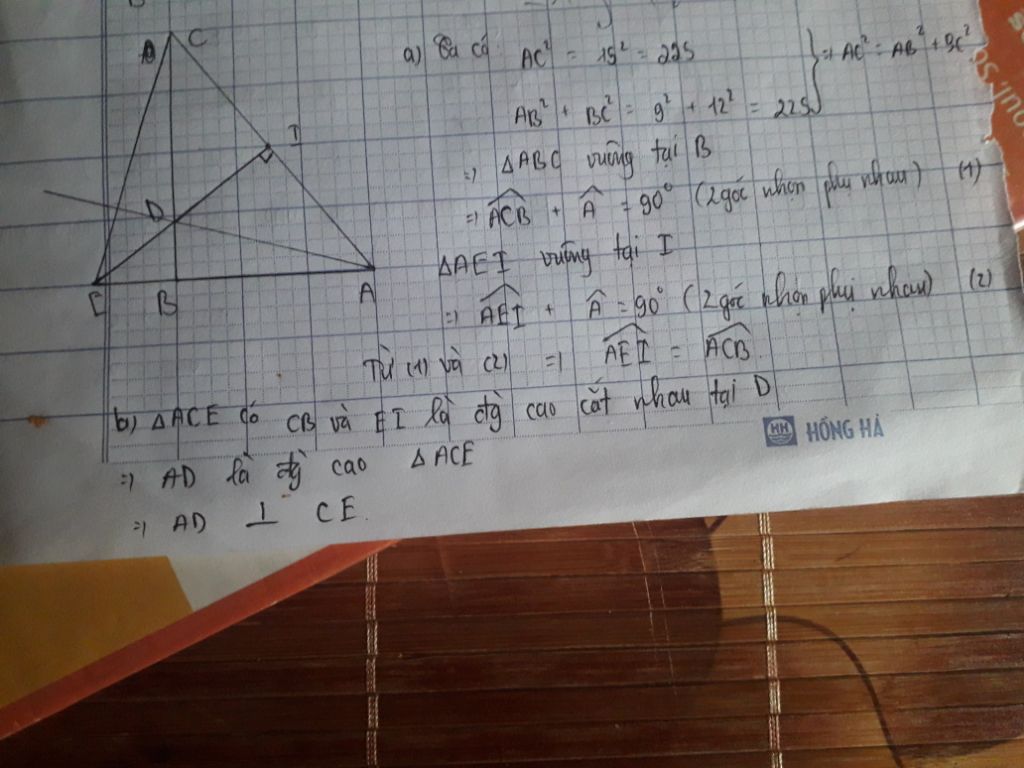 C
I
D
E B A
a) Ta có AC² = 15² = 225
AB² + BC² = 9² + 12² = 225 } => AC² = AB² + BC²
=> ΔABC vuông tại B
=> ACB + A = 90° (2 góc nhọn phụ nhau) (1)
ΔAEI vuông tại I
=> AEI + A = 90° (2 góc nhọn phụ nhau) (2)
Từ (1) và (2) => AEI = ACB.
b) ΔACE có CB và EI là đg cao cắt nhau tại D
=> AD là đg cao ΔACE
=> AD ⊥ CE.
HH HỒNG HÀ